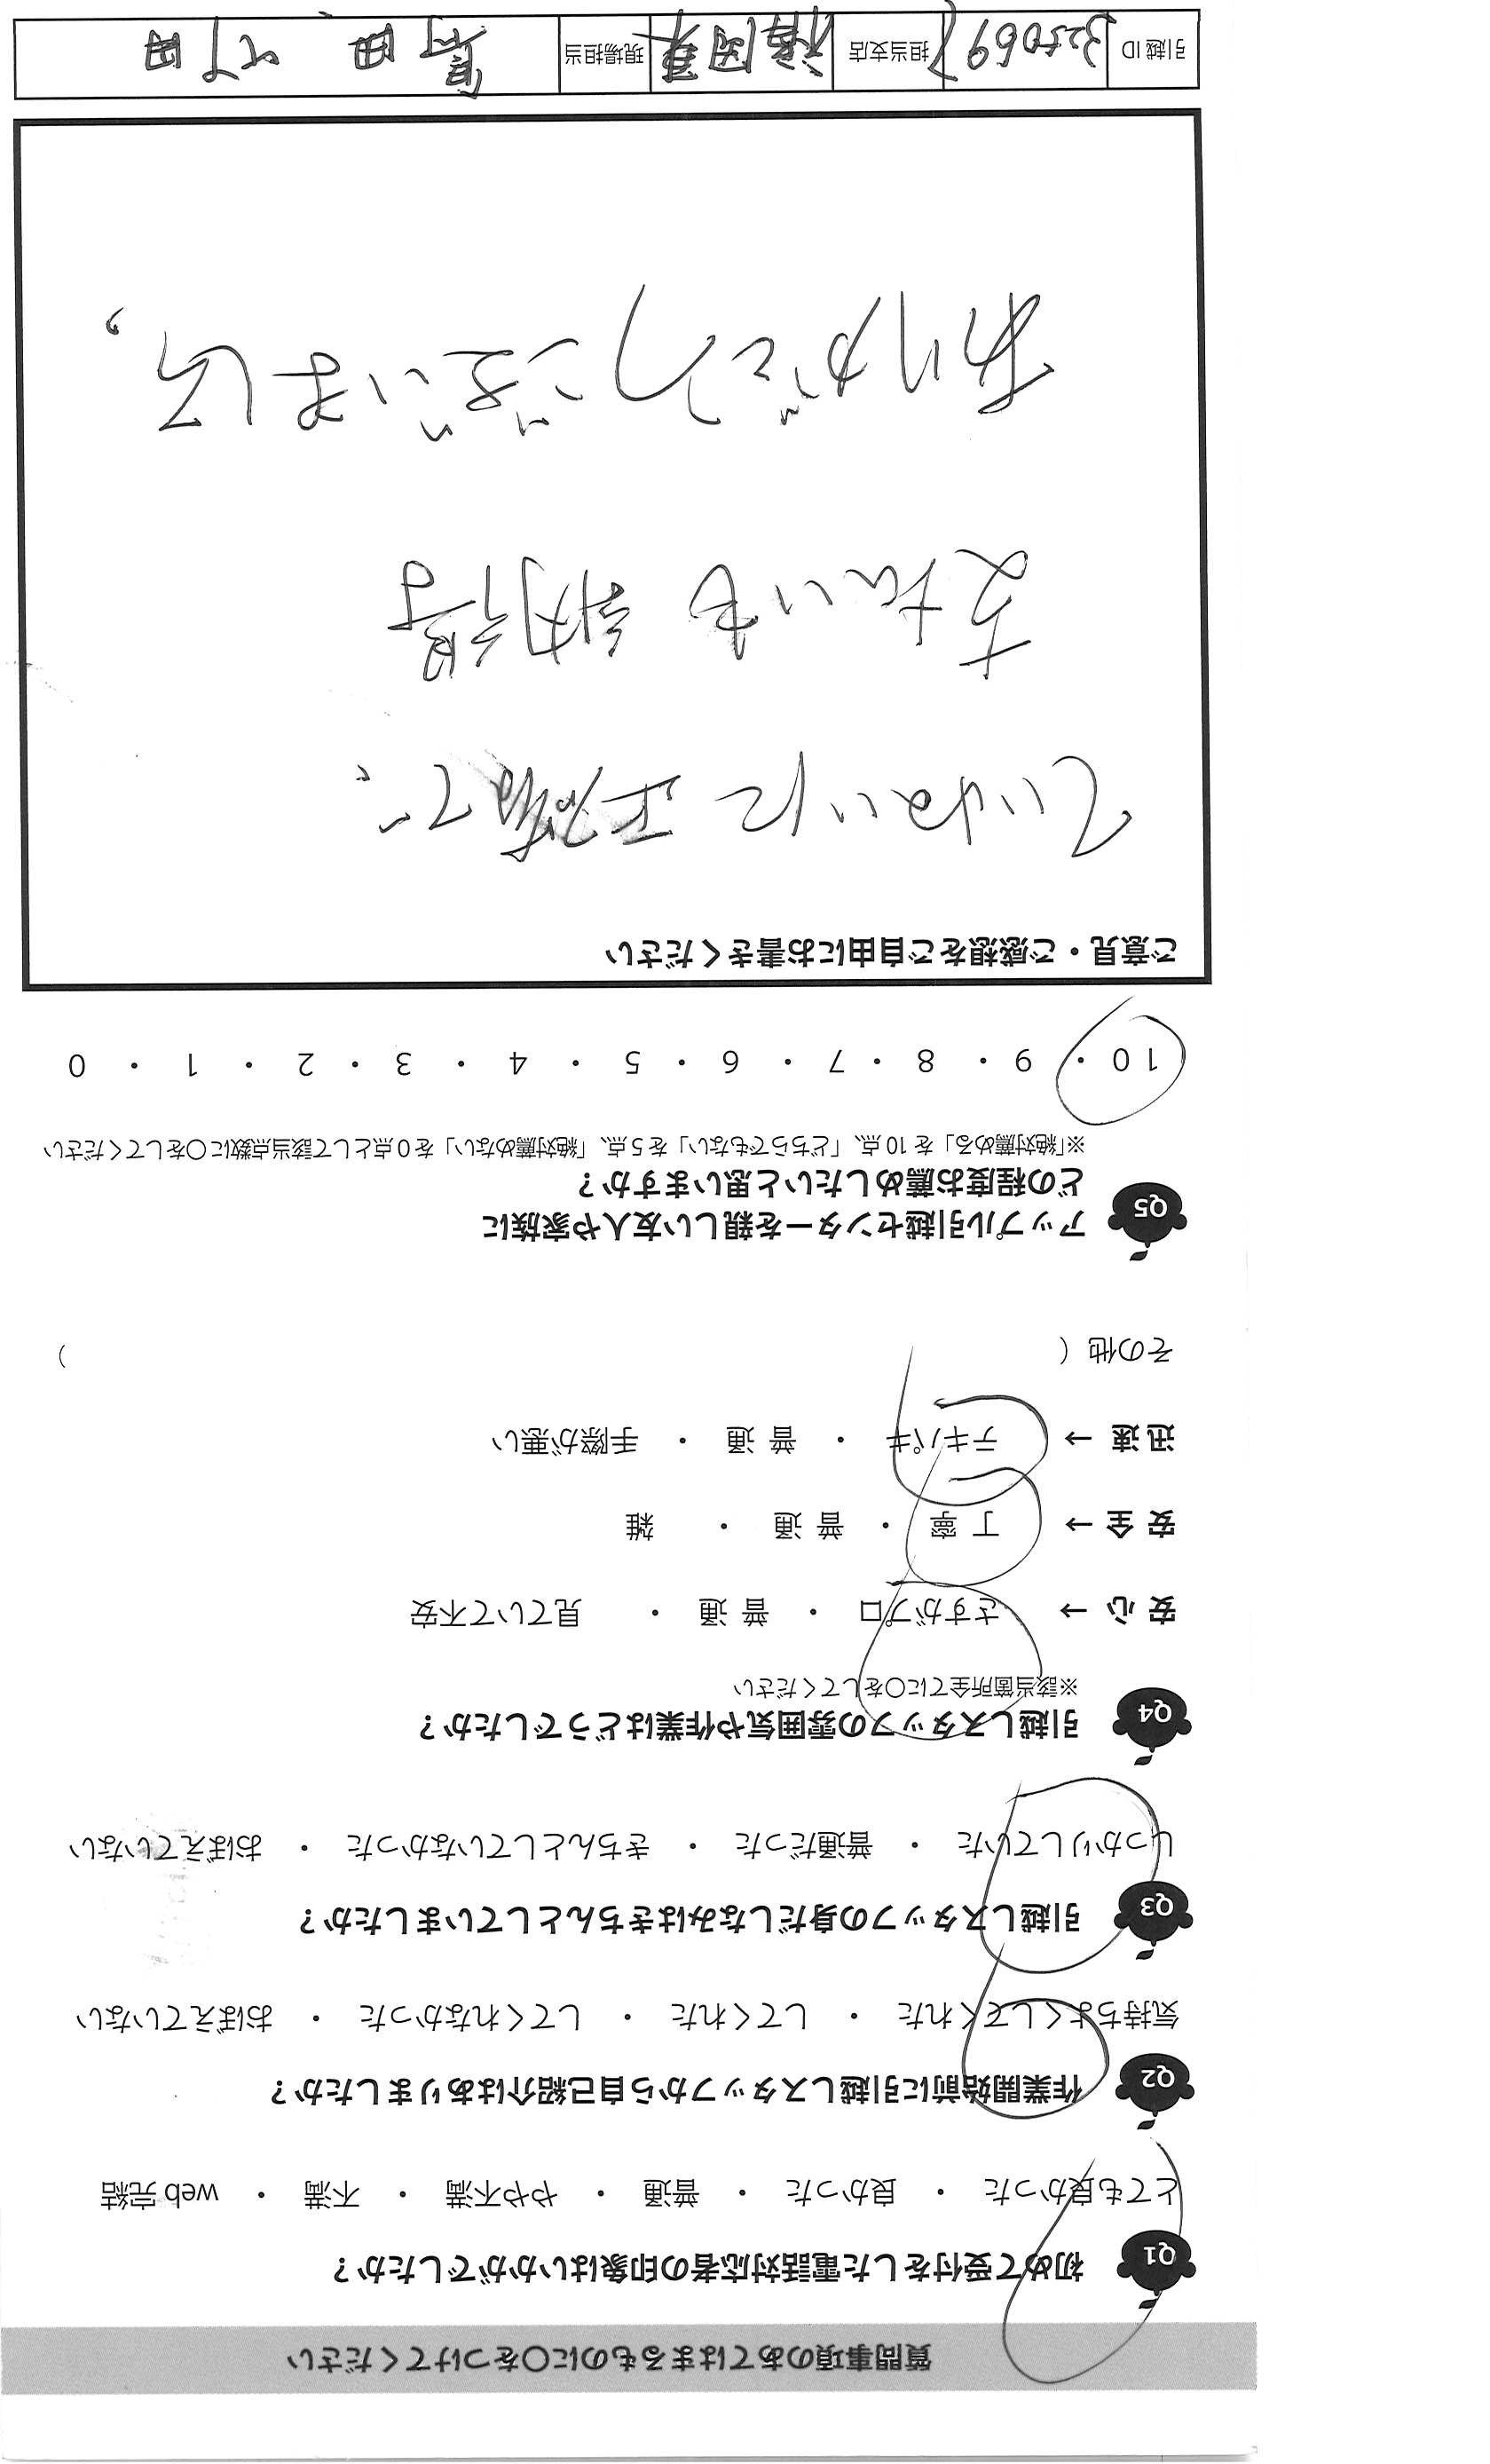 質問事項のあてはまるものに〇をつけてください
Q1 初めて受付をした電話対応者の印象はいかがでしたか？
とても良かった ・ 良かった ・ 普通 ・ やや不満 ・ 不満 ・ web 完結
Q2 作業開始前に引越しスタッフから自己紹介はありましたか？
気持ちよくしてくれた ・ してくれた ・ してくれなかった ・ おぼえていない
Q3 引越しスタッフの身だしなみはきちんとしていましたか？
しっかりしていた ・ 普通だった ・ きちんとしていなかった ・ おぼえていない
Q4 引越しスタッフの雰囲気や作業はどうでしたか？
※該当箇所全てに〇をしてください
安 心 → さすがプロ ・ 普 通 ・ 見ていて不安
安 全 → 丁 寧 ・ 普 通 ・ 雑
迅 速 → テキパキ ・ 普 通 ・ 手際が悪い
その他（ ）
Q5 アップル引越センターを親しい友人や家族に
どの程度お薦めしたいと思いますか？
※「絶対薦める」を 10 点、「どちらでもない」を 5 点、「絶対薦めない」を 0 点として該当点数に〇をしてください
10 ・ 9 ・ 8 ・ 7 ・ 6 ・ 5 ・ 4 ・ 3 ・ 2 ・ 1 ・ 0
ご意見・ご感想をご自由にお書きください
ていねいに 正確で、
支払いも 納得
ありがとうございました。
引越 ID 3250697 担当支店 福岡東 現場担当 島田、町田